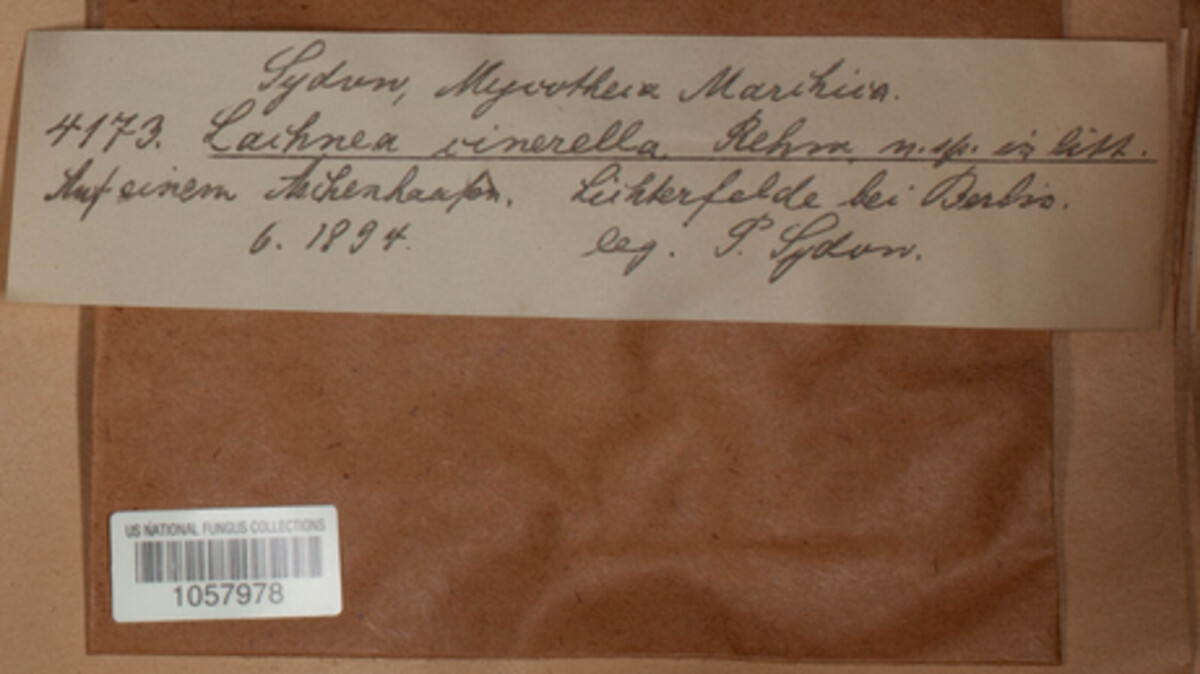 Sydow, Mycotheca Marchica.
4173. Lachnea cinerella Rehm n.sp. in litt.
Auf einem Aschenhaufen. Lichterfelde bei Berlin.
6. 1894. leg. P. Sydow.
US NATIONAL FUNGUS COLLECTIONS
1057978